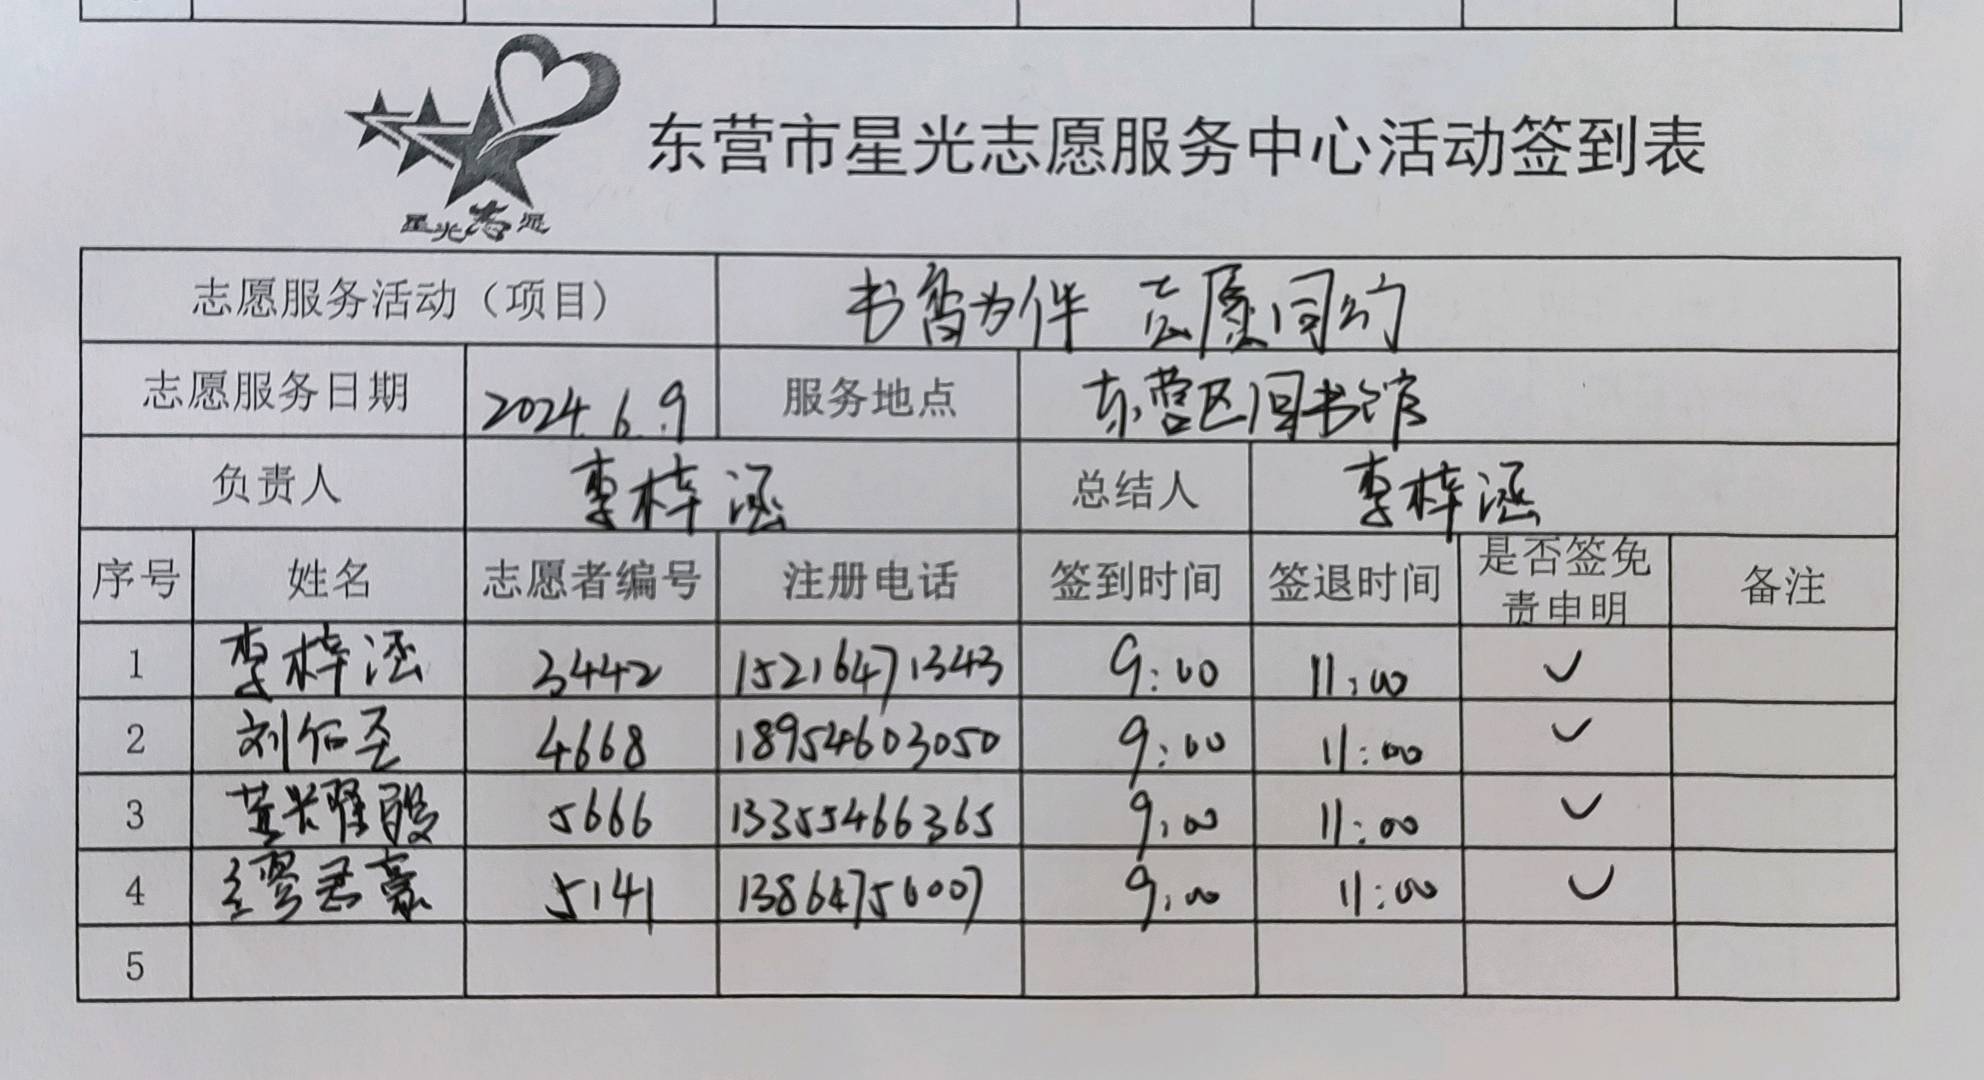 星光志愿
东营市星光志愿服务中心活动签到表
志愿服务活动（项目） 书香为伴 志愿同行
志愿服务日期 2024.6.9 服务地点 东营区图书馆
负责人 李梓涵 总结人 李梓涵
序号 姓名 志愿者编号 注册电话 签到时间 签退时间 是否签免责申明 备注
1 李梓涵 3442 15216471343 9:00 11:00 ✓
2 刘 4668 18954603050 9:00 11:00 ✓
3 5666 13355466365 9:00 11:00 ✓
4 5141 13864756007 9:00 11:00 ✓
5